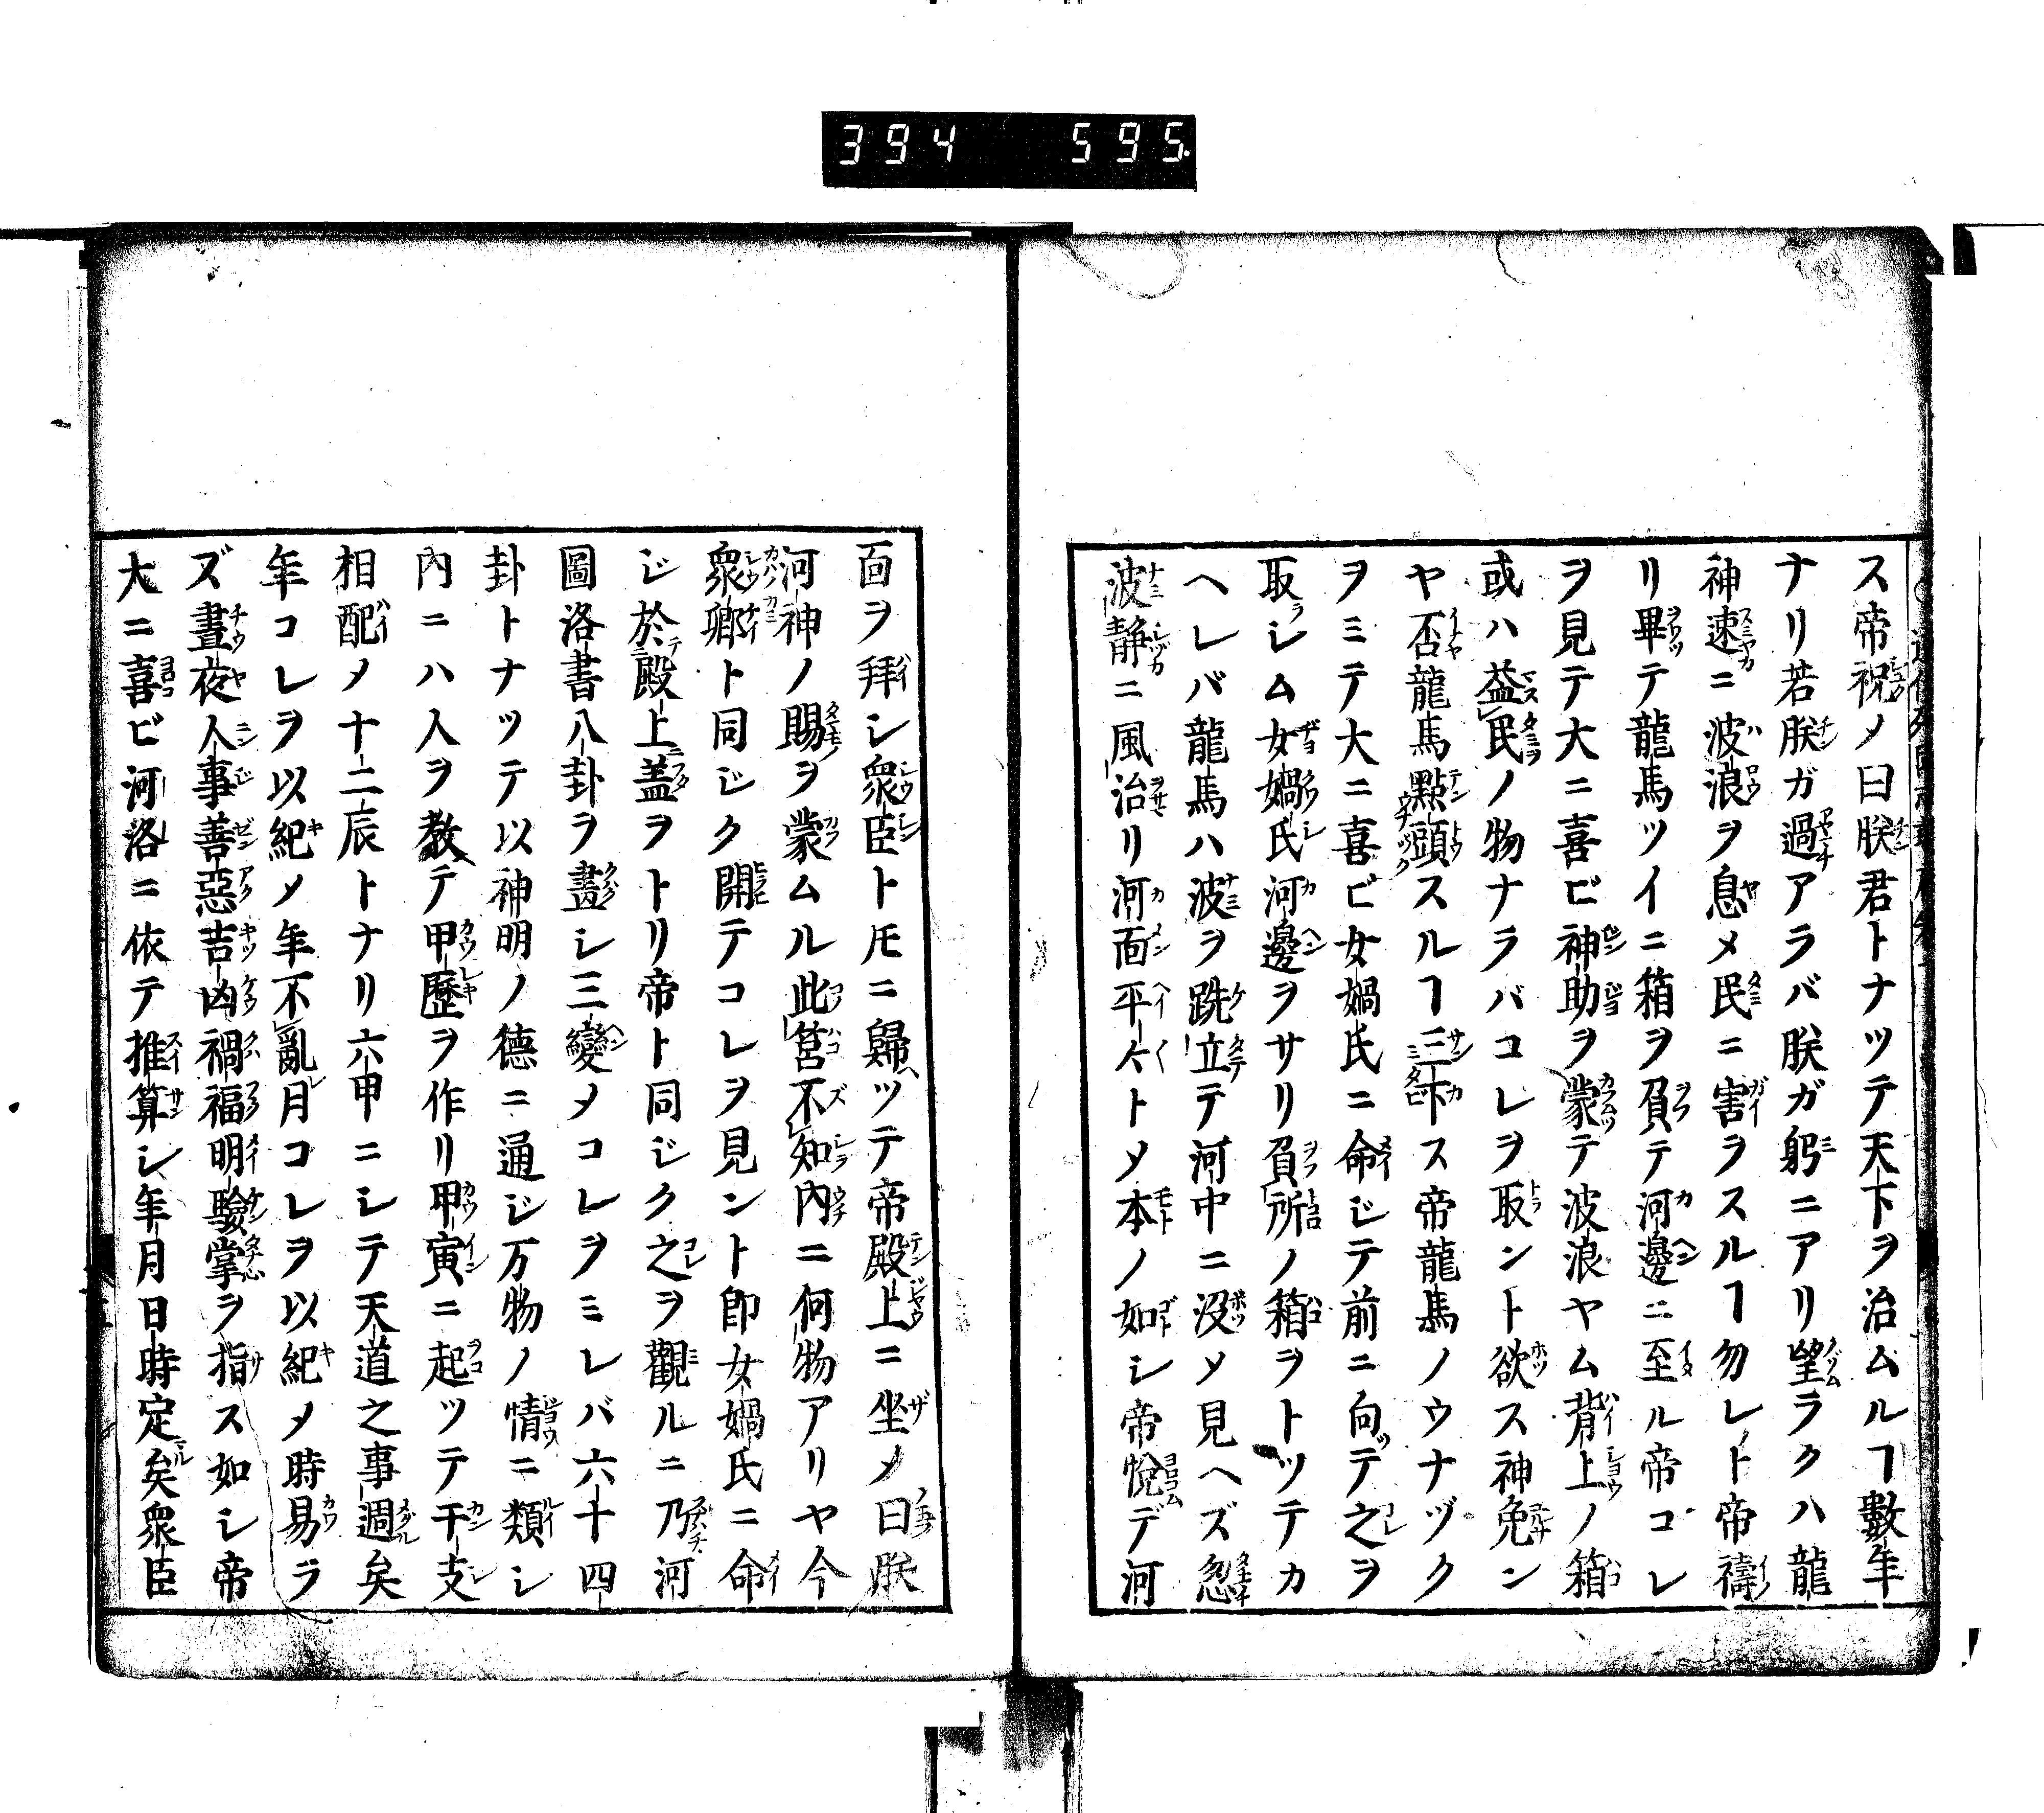 394 595
ス帝祝メ曰朕君トナツテ天下ヲ治ムルヿ數年
ナリ若朕ガ過アラバ朕ガ躬ニアリ望ラクハ龍
神速ニ波浪ヲ息メ民ニ害ヲスルヿ勿レト帝禱
リ畢テ龍馬ツイニ箱ヲ負テ河邊ニ至ル帝コレ
ヲ見テ大ニ喜ビ神助ヲ蒙テ波浪ヤム背上ノ箱
或ハ益民ノ物ナラバコレヲ取ント欲ス神免ン
ヤ否龍馬點頭スルヿ三下ス帝龍馬ノウナヅク
ヲミテ大ニ喜ビ女媧氏ニ命ジテ前ニ向テ之ヲ
取シム女媧氏河邊ヲサリ負所ノ箱ヲトツテカ
ヘレバ龍馬ハ波ヲ跣立テ河中ニ没メ見ヘズ忽
波静ニ風治リ河面平々トメ本ノ如シ帝悅デ河
面ヲ拜シ衆臣トモニ歸ツテ帝殿上ニ坐メ曰朕
河神ノ賜ヲ蒙ムル此筥不知內ニ何物アリヤ今
衆卿ト同ジク開テコレヲ見ント卽女媧氏ニ命
ジ於殿上盖ヲトリ帝ト同ジク之ヲ觀ルニ乃河
圖洛書八卦ヲ畫シ三變メコレヲミレバ六十四
卦トナツテ以神明ノ德ニ通ジ万物ノ情ニ類シ
內ニハ人ヲ教テ甲歷ヲ作リ甲寅ニ起ツテ干支
相配メ十二辰トナリ六甲ニシテ天道之事週矣
年コレヲ以紀メ年不亂月コレヲ以紀メ時易ラ
ズ晝夜人事善惡吉凶禍福明驗掌ヲ指ス如シ帝
大ニ喜ビ河洛ニ依テ推算シ年月日時定矣衆臣